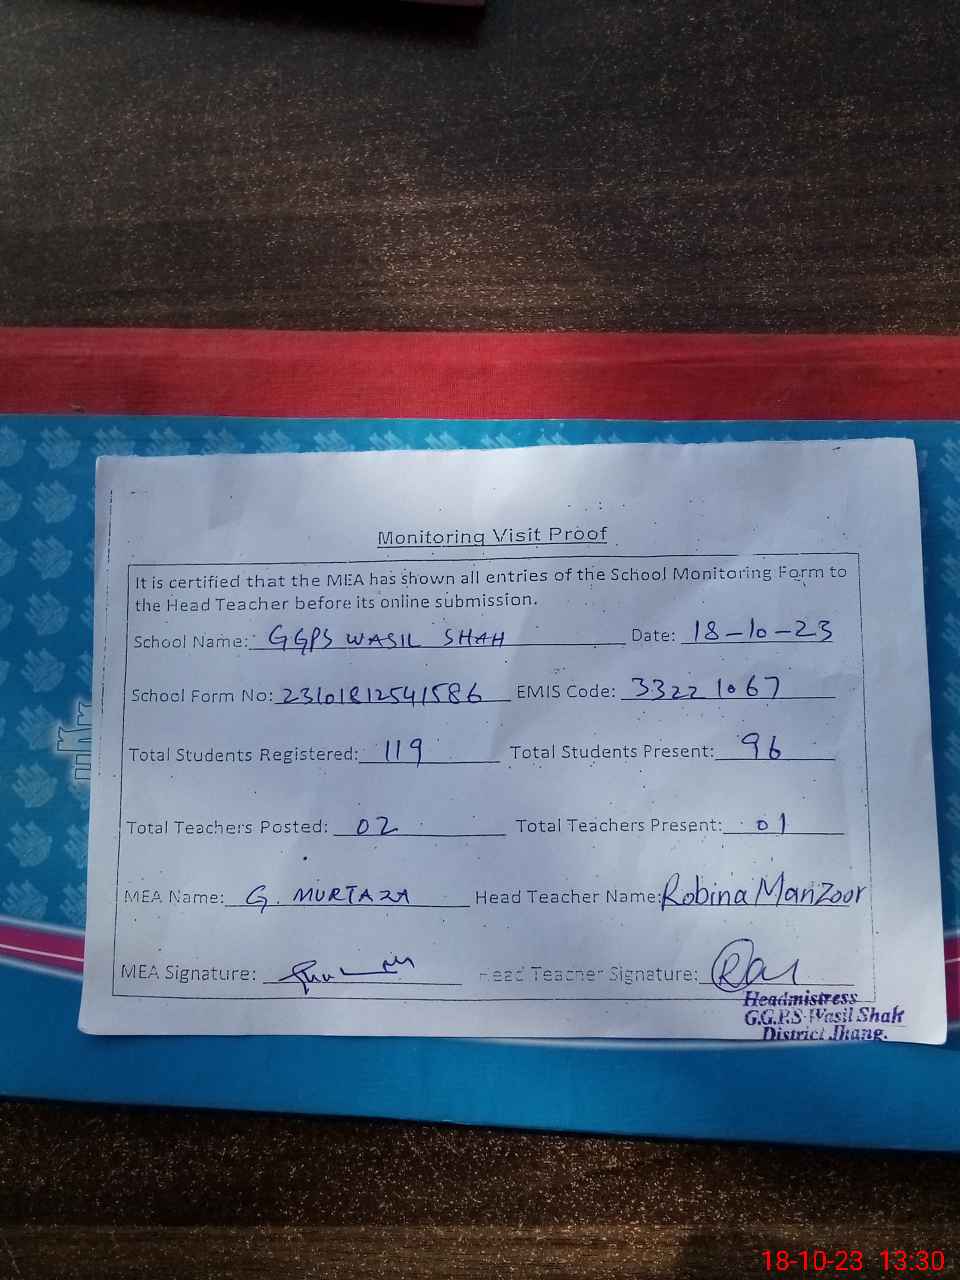 Monitoring Visit Proof
It is certified that the MEA has shown all entries of the School Monitoring Form to
the Head Teacher before its online submission.
School Name: GGPS WASIL SHAH Date: 18-10-23
School Form No: 23101812541586 EMIS Code: 33221067
Total Students Registered: 119 Total Students Present: 96
Total Teachers Posted: 02 Total Teachers Present: 01
MEA Name: G. MURTAZA Head Teacher Name: Robina Manzoor
MEA Signature: Head Teacher Signature:
Headmistress
G.G.P.S Wasil Shah
District Jhang.
18-10-23 13:30